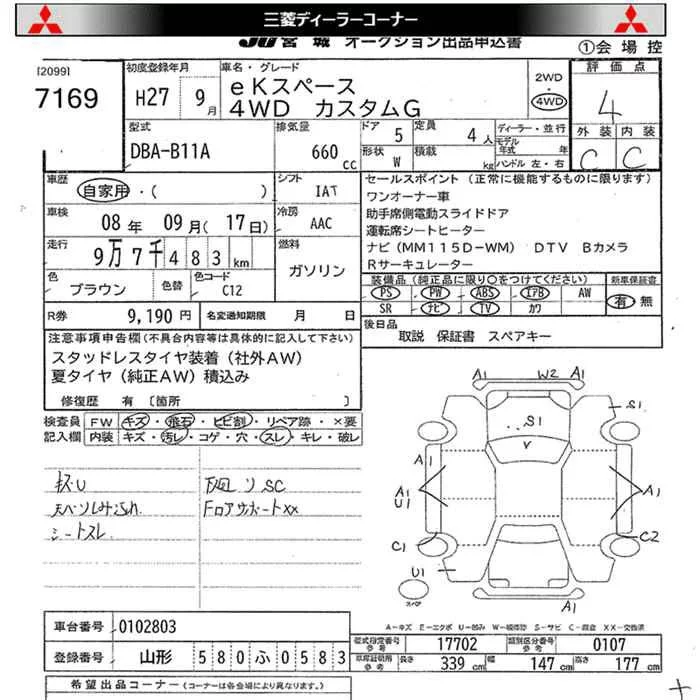 三菱ディーラーコーナー
JU宮城 オークション出品申込書
①会場控
[2099]
7169
初度登録年月
H27 9月
車名・グレード
eKスペース
4WD カスタムG
2WD
・
4WD
評価点
4
外装 内装
C C
型式
DBA-B11A
排気量
660 cc
ドア 5
定員 4人
形状 W
積載 kg
ディーラー・並行
モデル年式 年
ハンドル 左・右
車歴
自家用・( )
シフト
IAT
車検
08年 09月(17日)
冷房
AAC
走行
9万7千483km
燃料
ガソリン
色
ブラウン
色替
色コード
C12
R券 9,190円
名変通知期限 月 日
セールスポイント (正常に機能するものに限ります)
ワンオーナー車
助手席側電動スライドドア
運転席シートヒーター
ナビ(MM115D-WM) DTV Bカメラ
Rサーキュレーター
装備品(純正品に限り〇をつけてください)
新車保証書
PS PW ABS エアB AW
SR ナビ TV カワ
有・無
後日品
取説 保証書 スペアキー
注意事項申告欄(不具合内容等は具体的に記入して下さい)
スタッドレスタイヤ装着(社外AW)
夏タイヤ(純正AW)積込み
修復歴 有〔箇所 〕
検査員記入欄
FW キズ・飛石・ヒビ割・リペア跡・×要
内装 キズ・汚レ・コゲ・穴・スレ・キレ・破レ
下廻リSC
Fロアサポートxx
シートスレ
A1 W2 A1
S1 S1
A1
A1 U1 A1
C1 C2
U1 A1
スペア
A-キズ E-エクボ U-凹み W-補修跡 S-サビ C-腐食 XX-交換済
車台番号 0102803
登録番号 山形 580ふ0583
型式指定番号 参考 17702
類別区分番号 参考 0107
車庫証明用 参考 長さ 339cm 幅 147cm 高さ 177cm
希望出品コーナー(コーナーは各会場により異なります。)